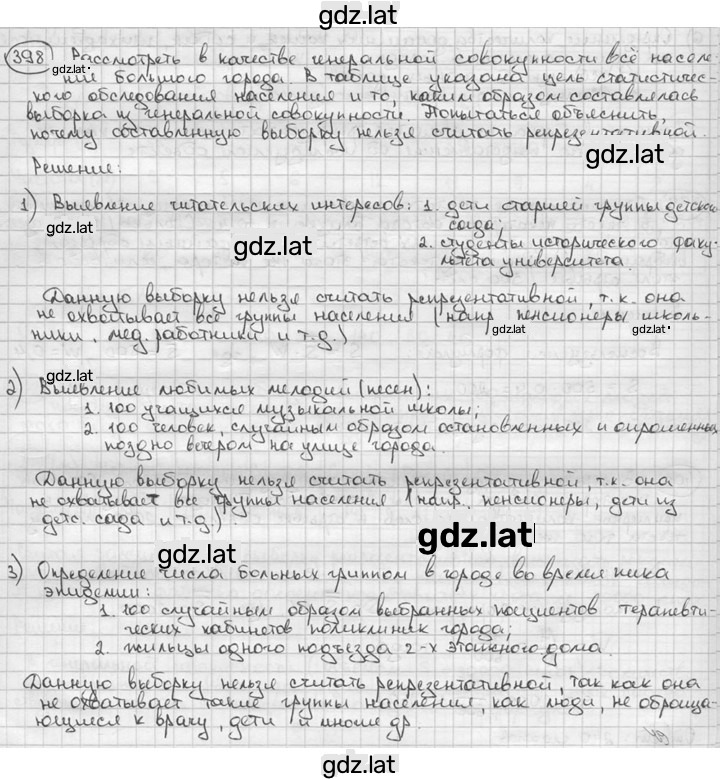 gdz.lat
398 Рассмотреть в качестве генеральной совокупности всё населе-
gdz.lat
ний большого города. В таблице указана цель статистичес-
кого обследования населения и то, каким образом составлялась
выборка из генеральной совокупности. Попытаться объяснить,
почему составленную выборку нельзя считать репрезентативной.
gdz.lat
Решение:
1) Выявление читательских интересов: 1. дети старшей группы детского
сада;
gdz.lat
gdz.lat
2. студенты исторического факу-
льтета университета.
Данную выборку нельзя считать репрезентативной, т.к. она
не охватывает все группы населения (напр. пенсионеры, школь-
gdz.lat
gdz.lat
ники, мед. работники и т.д.)
gdz.lat
2) Выявление любимых мелодий (песен):
1. 100 учащихся музыкальной школы;
2. 100 человек, случайным образом остановленных и опрошенных
поздно вечером на улице города.
Данную выборку нельзя считать репрезентативной, т.к. она
не охватывает все группы населения (напр. пенсионеры, дети из
детс. сада и т.д.)
gdz.lat
gdz.lat
3) Определение числа больных гриппом в городе во время пика
эпидемии:
1. 100 случайным образом выбранных пациентов терапевти-
ческих кабинетов поликлиник города;
2. жильцы одного подъезда 2-х этажного дома.
Данную выборку нельзя считать репрезентативной, так как она
не охватывает такие группы населения, как люди, не обраща-
ющиеся к врачу, дети и многие др.
gdz.lat